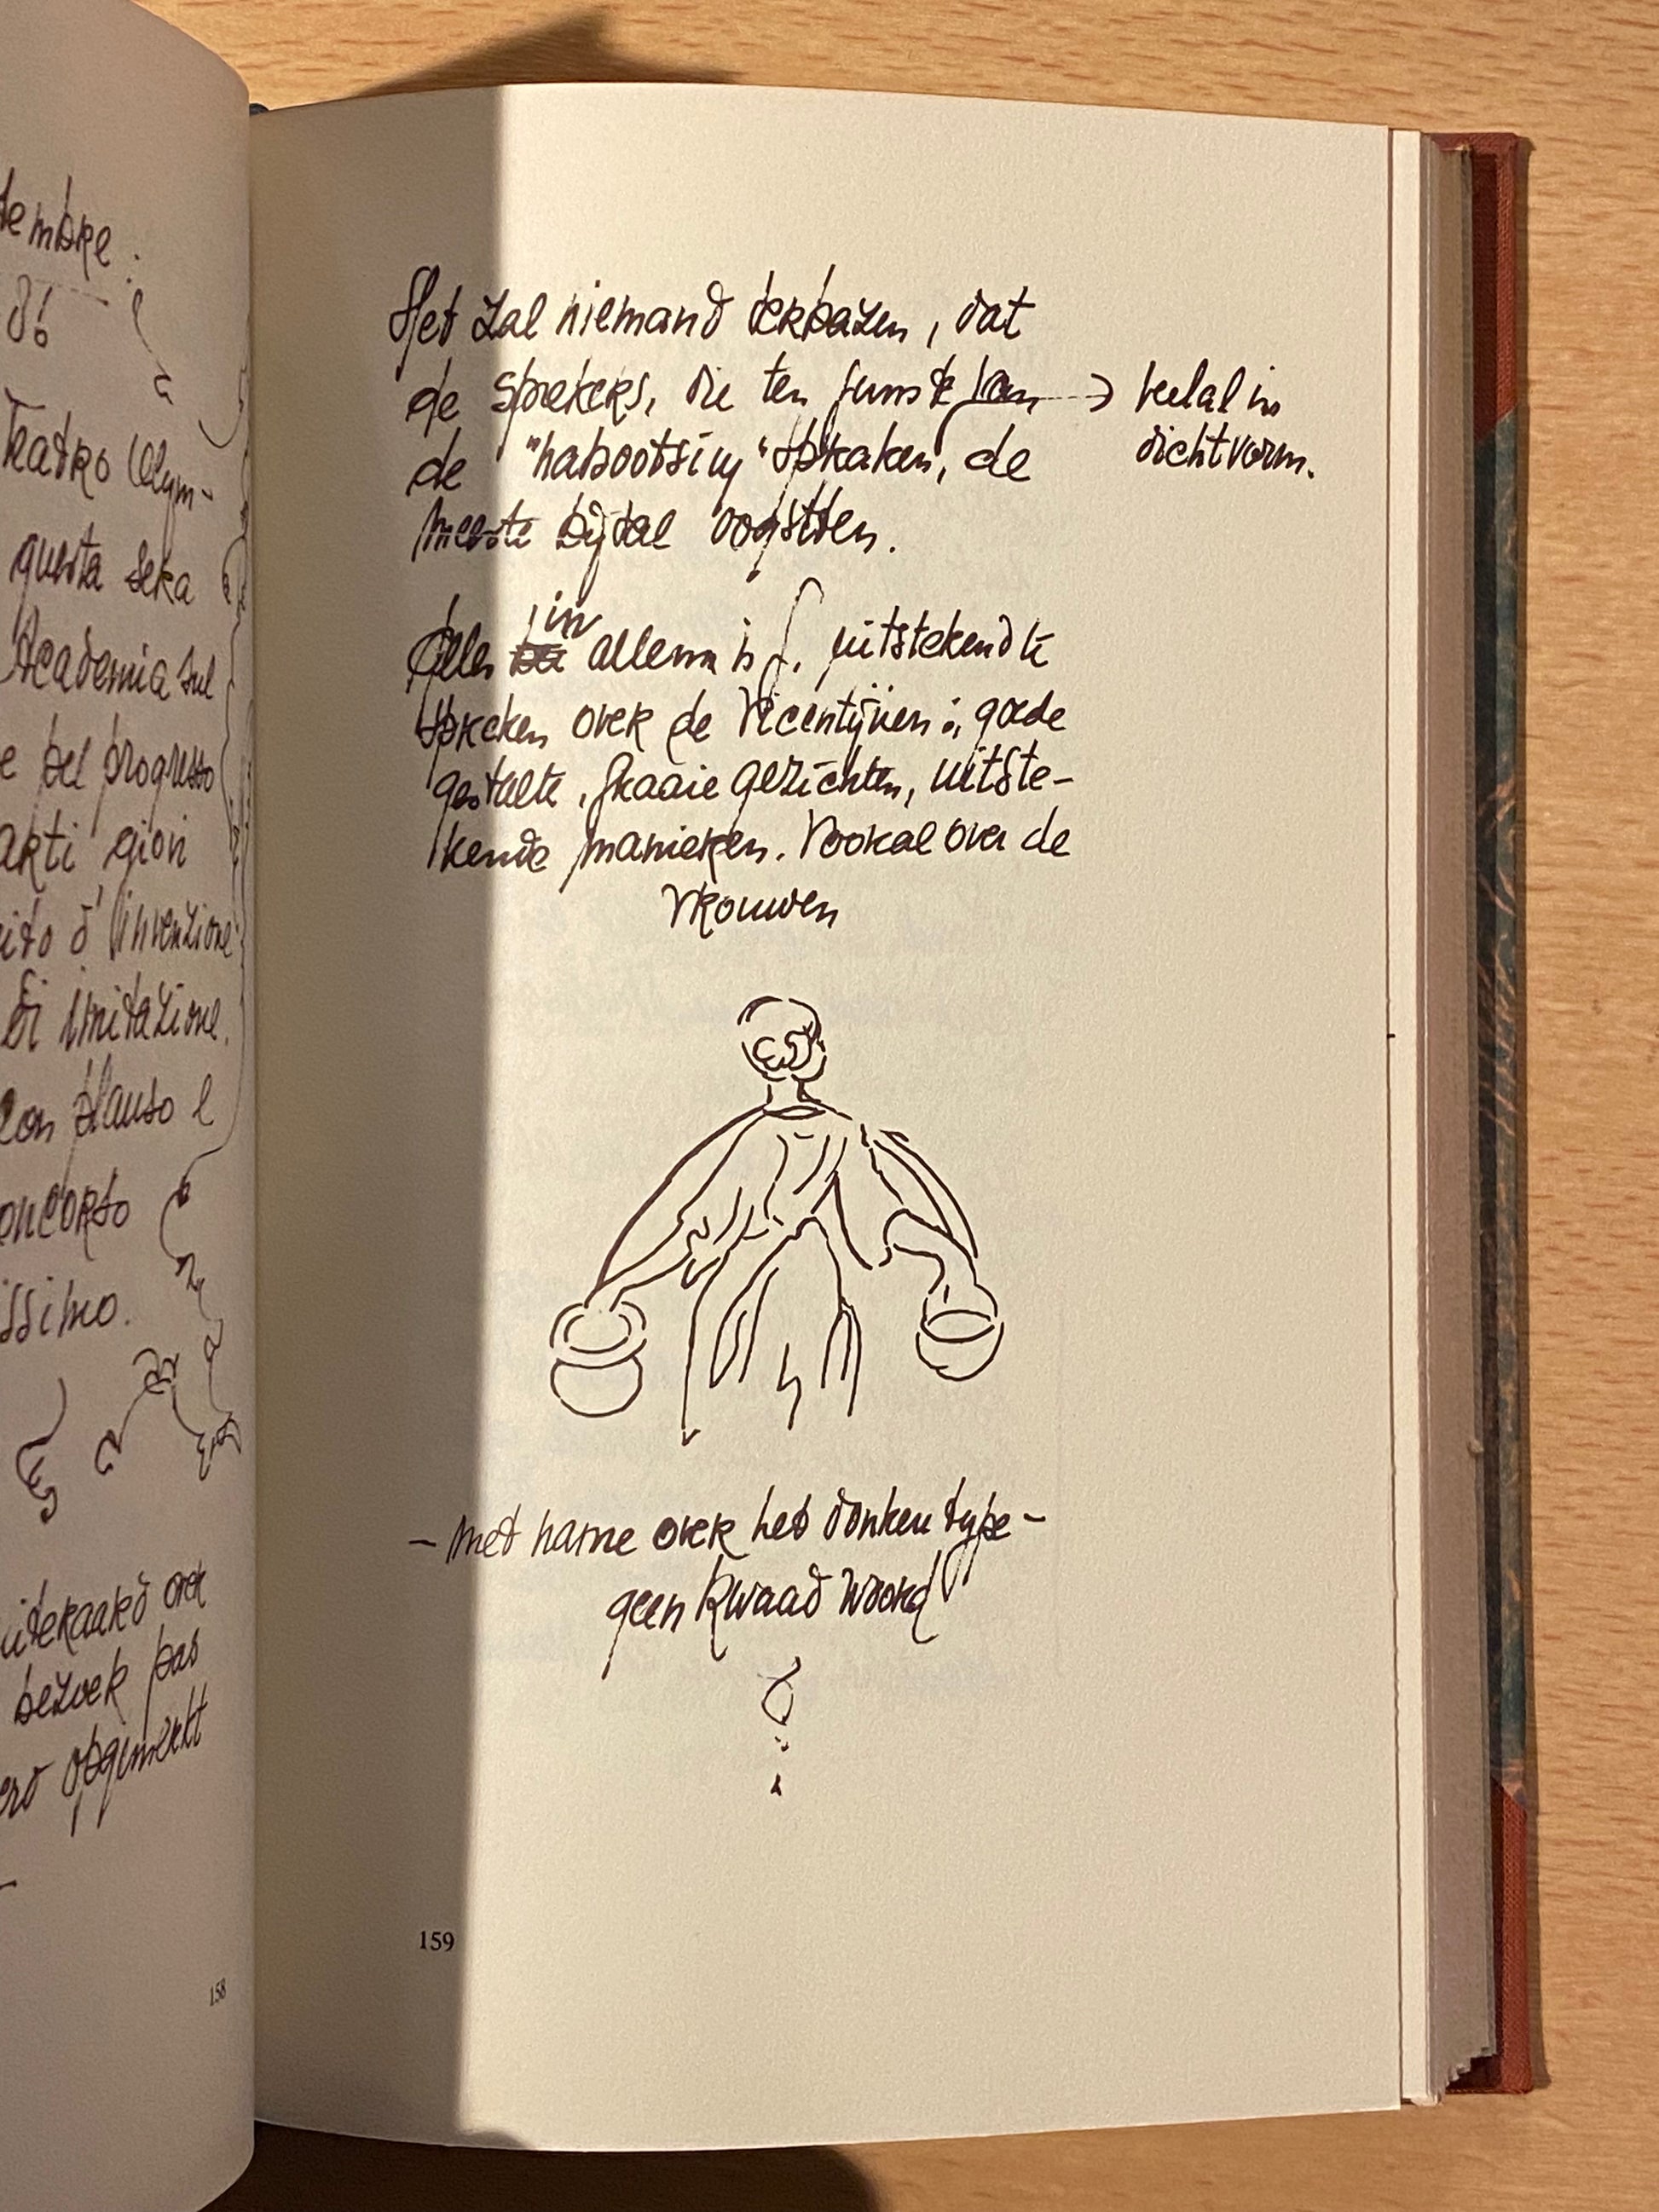 tembre:
Teatro Olym-
questa sera
Academia sul
e del progresso
arti gion
d'invenzione
di imitazione.
con plauso e
oncorso
issimo.
uiteraard over
bezoek pas
erd opgemerkt
158
Het zal niemand verbazen, dat
de sprekers, die ten gunste van → veelal in
dichtvorm.
de "nabootsing" spraken, de
meeste bijval oogstten.
Alles in allem is G. uitstekend te
spreken over de Vicentijnen: goede
gestalte, fraaie gezichten, uitste-
kende manieren. Vooral over de
vrouwen
- met name over het donkere type -
geen kwaad woord
159